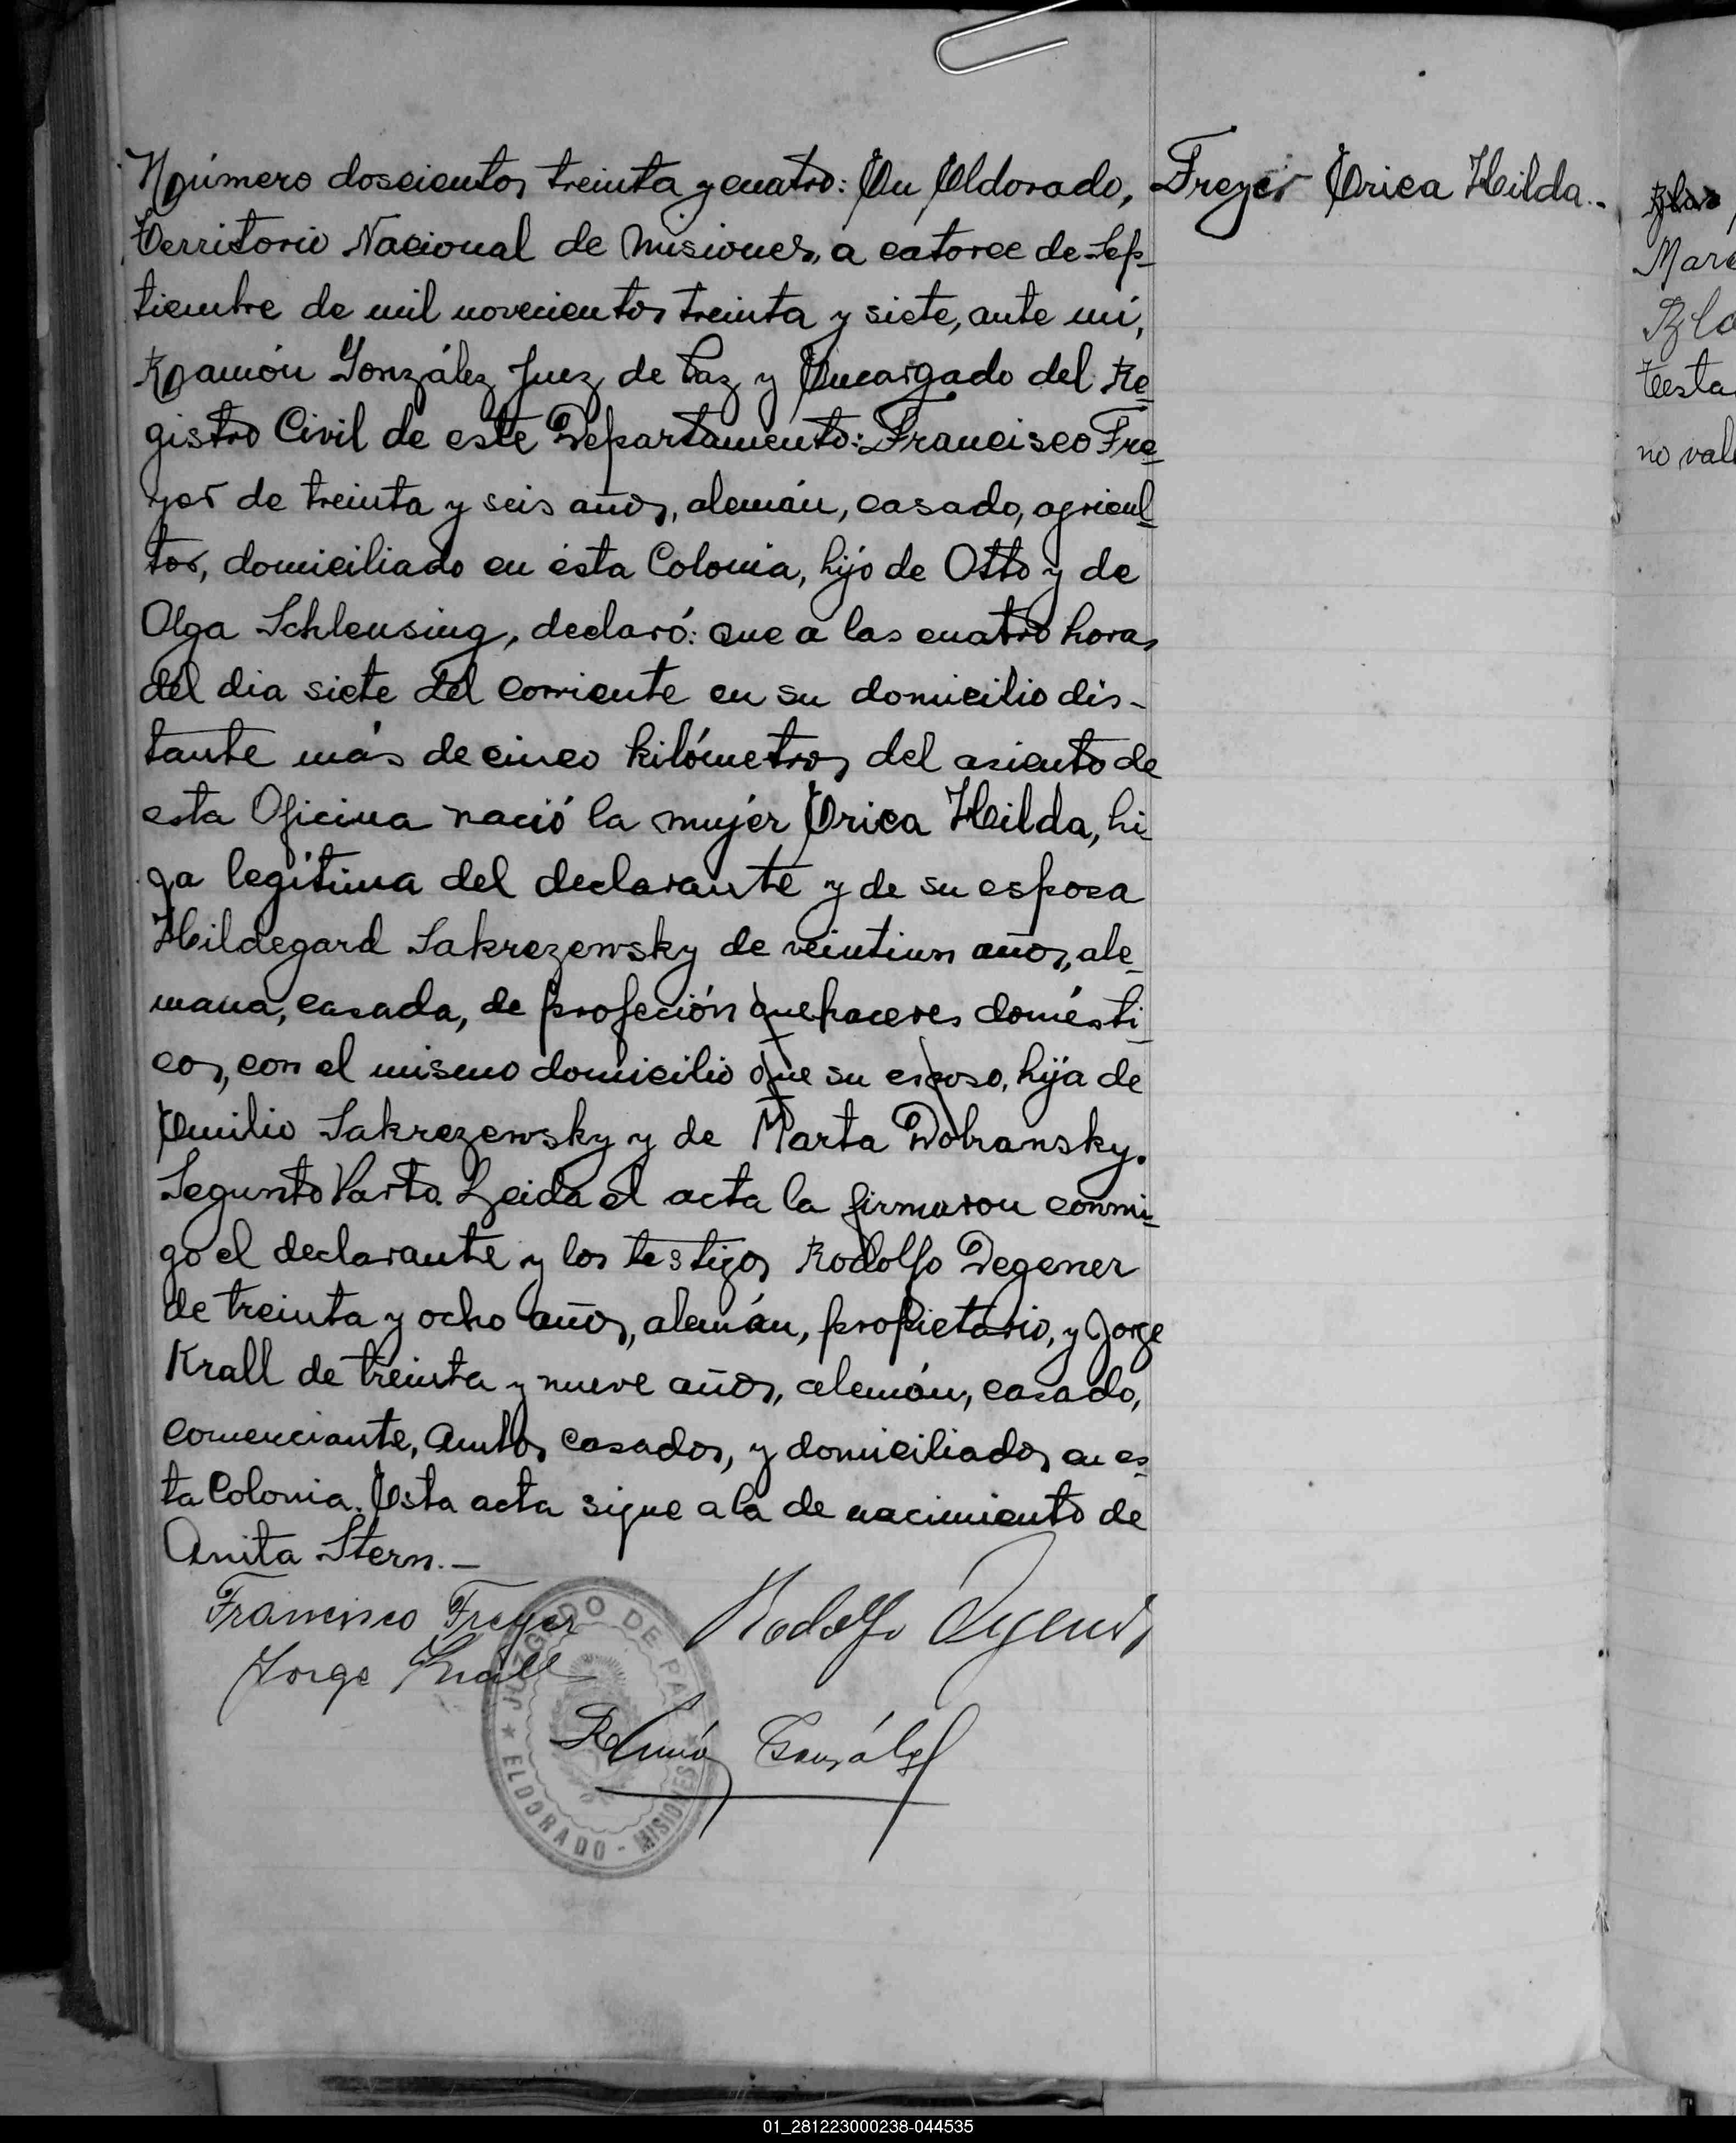 Número doscientos treinta y cuatro: En Eldorado,
Freyer Erica Hilda.-
Territorio Nacional de Misiones, a catorce de Sep-
tiembre de mil novecientos treinta y siete, ante mi,
Ramón González Juez de Paz y Encargado del Re-
gistro Civil de este Departamento: Francisco Fre-
yer de treinta y seis años, alemán, casado, agricul-
tor, domiciliado en ésta Colonia, hijo de Otto y de
Olga Schleusing, declaró: que a las cuatro horas
del dia siete del corriente en su domicilio dis-
tante más de cinco kilómetros del asiento de
esta Oficina nació la mujer Erica Hilda, hi-
ja legítima del declarante y de su esposa
Hildegard Sakrezewsky de veintiun años, ale-
mana, casada, de profeción quehaceres domésti-
cos, con el mismo domicilio que su esposo, hija de
Emilio Sakrezewsky y de Marta Dobransky.
Segunto Parto. Leida el acta la firmaron conmi-
go el declarante y los testigos Rodolfo Degener
de treinta y ocho años, alemán, propietario, y Jorge
Krall de treinta y nueve años, alemán, casado,
comenciante, Ambos casados, y domiciliados en es-
ta Colonia. Esta acta sigue a la de nacimiento de
Anita Stern.-
Francisco Freyer
Rodolfo Degener
Jorge Krall
Ramón González
JUZGADO DE PAZ
★ ELDORADO - MISIONES ★
Mare
Blo
testa
no vale
01_281223000238-044535